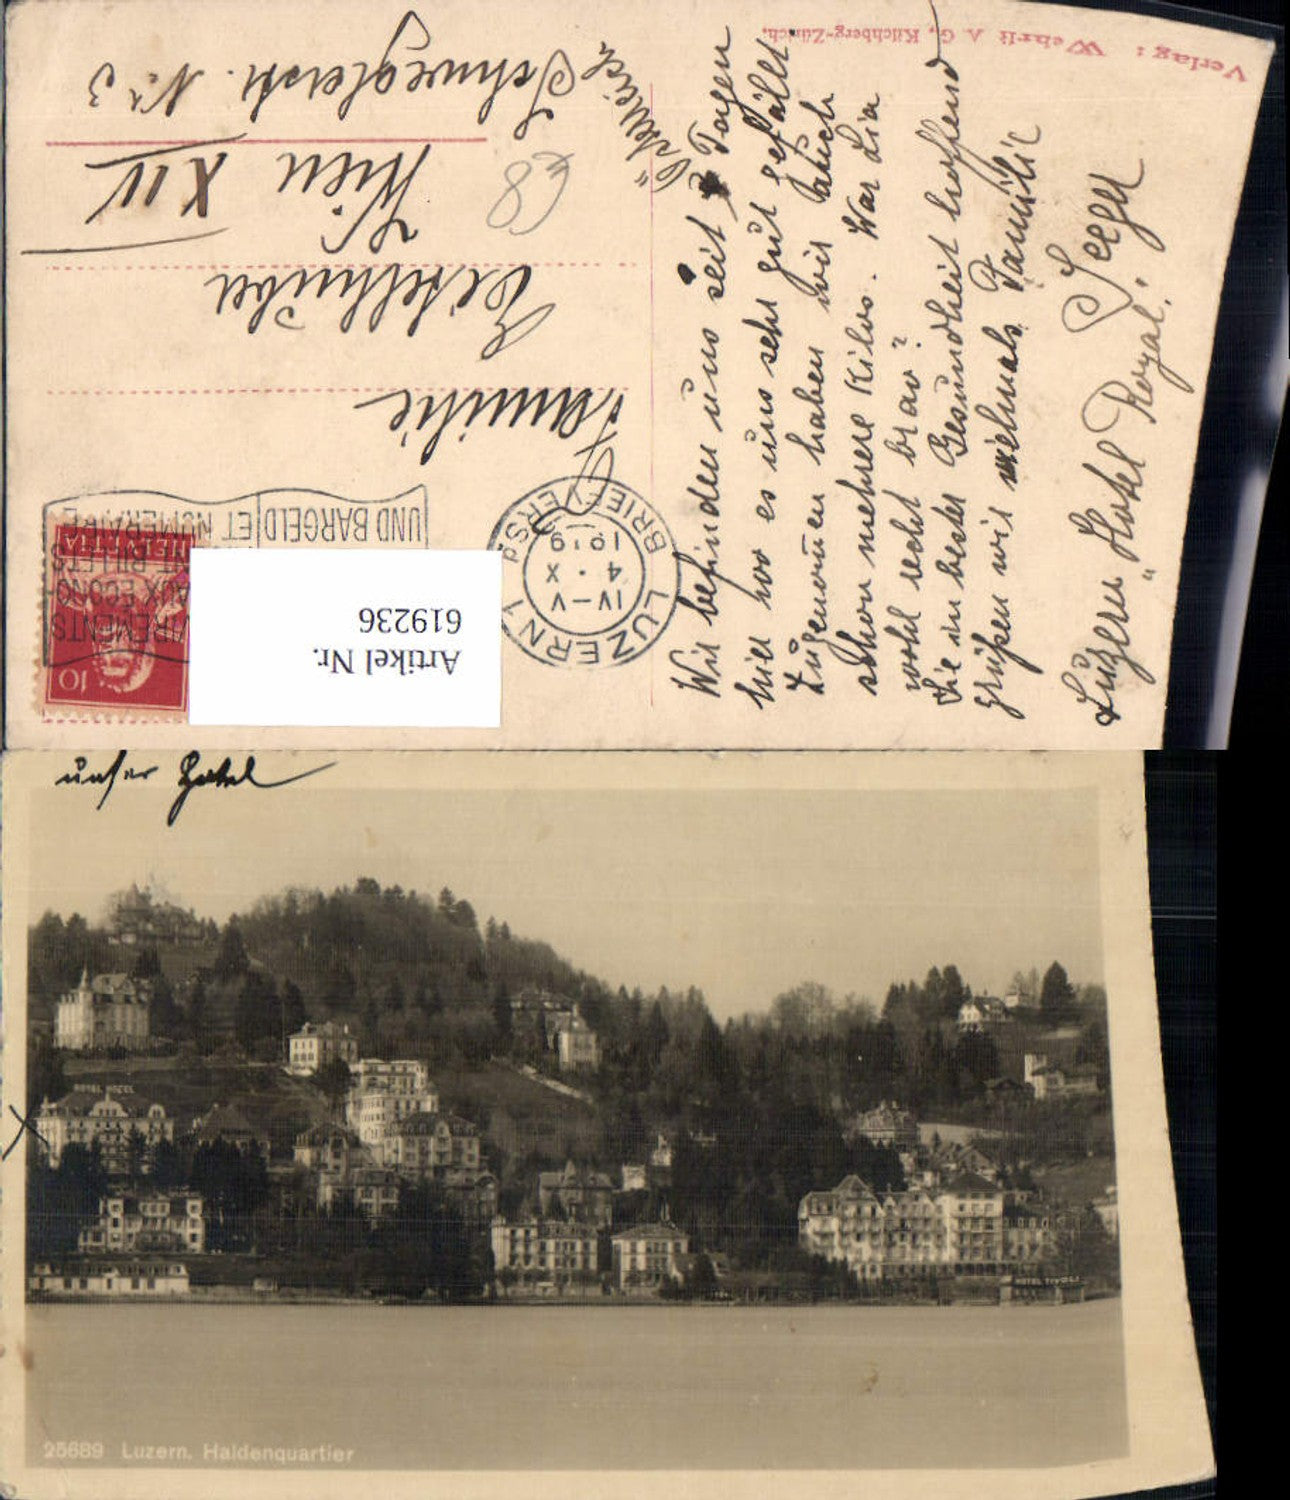 Verlag: Wehrli A G., Kilchberg-Zürich.
Wir befinden uns seit 3 Tagen
hier wo es uns sehr gut gefällt
Zugenomen haben wir auch
schon mehrere Kilos. War Lia
wohl recht brav?
Sie in bester Gesundheit hoffend
grüßen wir vielmals Familie
Seeger
Luzern "Hotel Royal."
LUZERN 1
BRIEFVERSd.
IV–V
4. X
1919
VIREMENTS
AUX ECONO-
NT BILLETS
ET NUMERAIRE
UND BARGELD
HELVETIA
10
Familie
Wien XIV
Schweglerstr. No 3
Artikel Nr.
619236
€8
unser Hotel
HOTEL ROYAL
HOTEL TIVOLI
25689 Luzern. Haldenquartier